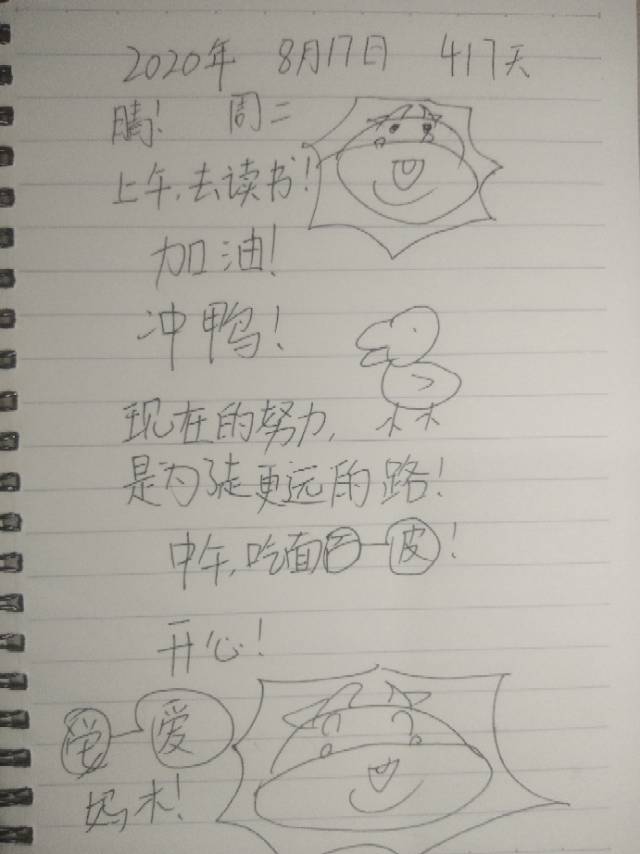 2020年 8月17日 417天
晴! 周二
上午,去读书!
加油!
冲鸭!
现在的努力,
是为了走更远的路!
中午,吃面皮!
开心!
爱
妈木!